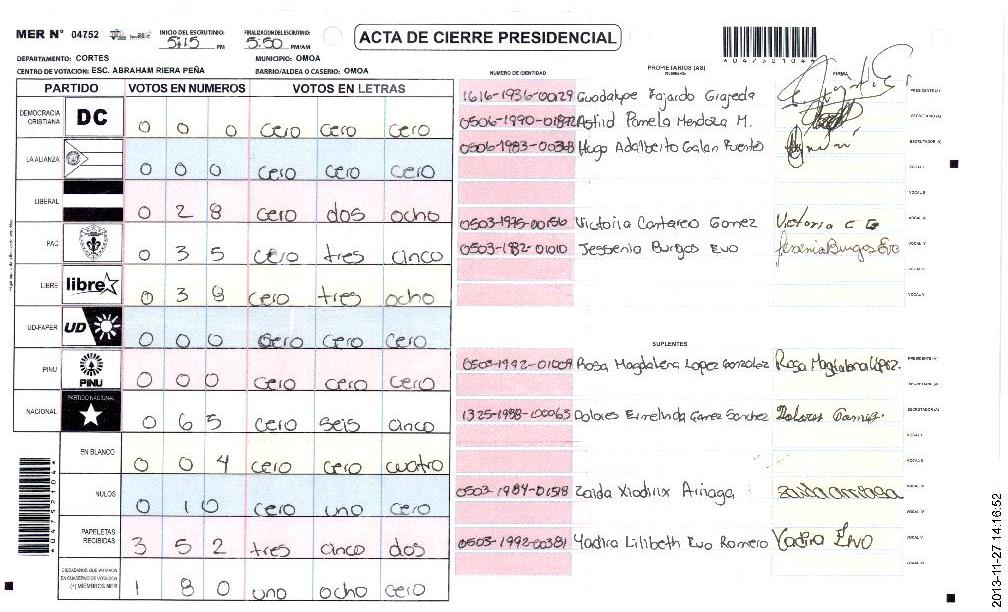 MER N° 04752 INICIO DEL ESCRUTINIO: 5:15 PM FINALIZACION DEL ESCRUTINIO: 5:50 PM/AM ACTA DE CIERRE PRESIDENCIAL
*047521044*
DEPARTAMENTO: CORTES MUNICIPIO: OMOA
CENTRO DE VOTACION: ESC. ABRAHAM RIERA PEÑA BARRIO/ALDEA O CASERIO: OMOA
PARTIDO VOTOS EN NUMEROS VOTOS EN LETRAS
DEMOCRACIA CRISTIANA DC 0 0 0 cero cero cero
LA ALIANZA 0 0 0 cero cero cero
LIBERAL 0 2 8 cero dos ocho
PAC 0 3 5 cero tres cinco
LIBRE libre 0 3 8 cero tres ocho
UD-FAPER UD 0 0 0 cero cero cero
PINU PINU 0 0 0 cero cero cero
NACIONAL PARTIDO NACIONAL 0 6 5 cero seis cinco
EN BLANCO 0 0 4 cero cero cuatro
NULOS 0 1 0 cero uno cero
PAPELETAS RECIBIDAS 3 5 2 tres cinco dos
CIUDADANOS QUE VOTARON EN CUADERNO DE VOTACION (+) MIEMBROS MER 1 8 0 uno ocho cero
*047521044*
NUMERO DE IDENTIDAD PROPIETARIOS (AS) NOMBRE: FIRMA
1616-1936-00129 Guadalupe Fajardo Grajeda PRESIDENTE (A)
Astrid Pamela Mendoza M. SECRETARIO (A)
Hugo Adalberto Galan Puento ESCRUTADOR (A)
VOCAL I
VOCAL II
0503-1975-00156 Victoria Cantareo Gomez Victoria C G VOCAL III
0503-1982-01010 Jessenia Burgos Evo Jessenia Burgos Evo VOCAL IV
VOCAL V
VOCAL VI
SUPLENTES
0503-1992-01009 Rosa Magdalena Lopez Gonzalez Rosa Magdalena López. PRESIDENTE (A)
SECRETARIO (A)
1325-1988-00063 Dolores Ermelinda Gamez Sanchez Dolores Gamez. ESCRUTADOR (A)
VOCAL I
VOCAL II
0503-1984-01518 Zaida Xiadirix Arriaga Zaida Arriaga VOCAL III
VOCAL IV
0503-1992-00381 Yadira Lilibeth Evo Romero Yadira Evo VOCAL V
VOCAL VI
2013-11-27 14:16:52